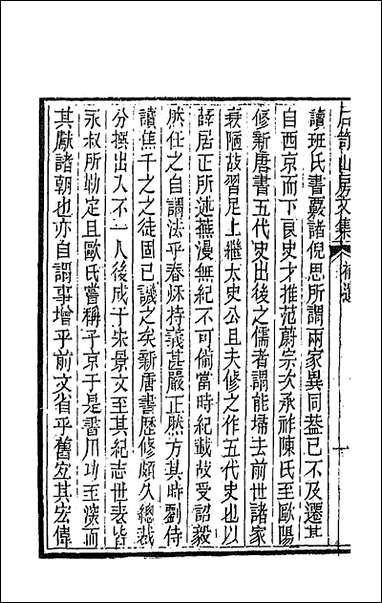 石笥山房文集 補遺
讀班氏書覈諸倪思所謂兩家異同葢已不及遷其
自西京而下良史才推范蔚宗次承祚陳氏至歐陽
修新唐書五代史出後之儒者謂能埽去前世諸家
陋故習足上繼太史公且夫修之作五代史也以
薛居正所述蕪漫無紀不可備當時紀載故受詔毅
肰任之自謂法乎春秌持義甚嚴正肰方其時劉侍
讀焦千之之徒固已譏之矣新唐書歴修頗久總裁
分撰出入不一人後成于宋景文至其紀志世表皆
永叔所勘定且歐氏嘗稱子京于是書用功至㴱而
其獻諸朝也亦自謂事增乎前文省乎舊宐其宏偉